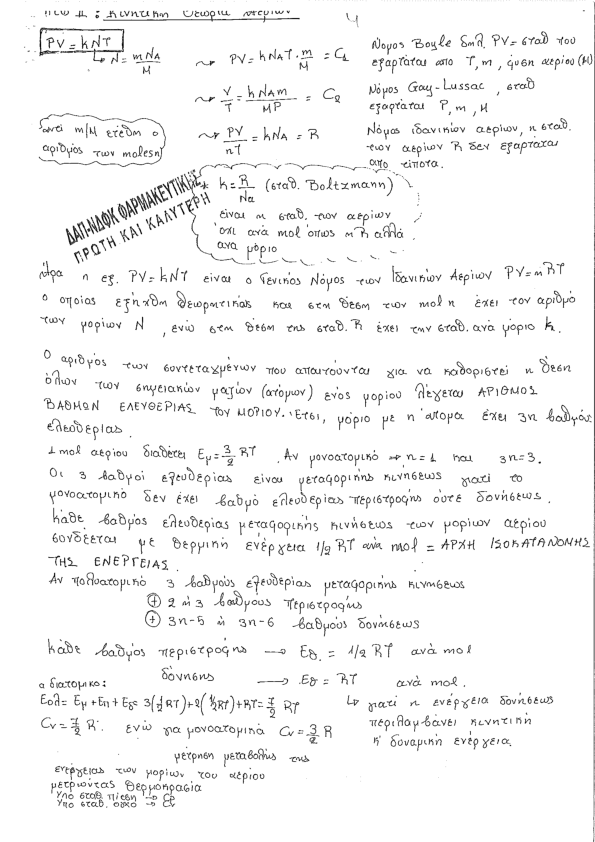 : Κινητική Θεωρία Αερίων
4
PV = kNT
↳ N = mNA/M
⤳ PV = kNAT · m/M = C1
Νομος Boyle δηλ. PV = σταθ που
εξαρταται απο T, m, φυση αεριου (M)
⤳ V/T = kNAm/MP = C2
Νόμος Gay-Lussac, σταθ
εξαρταται P, m, M
αντι m/M ετέθη ο
αριθμος των moles n
⤳ PV/nT = kNA = R
Νόμος ιδανικών αερίων, η σταθ.
των αερίων R δεν εξαρταται
απο τίποτα.
* k = R/Na (σταθ. Boltzmann)
είναι η σταθ. των αερίων
όχι ανά mol όπως η R αλλά
ανα μόριο
ΔΑΠ-ΝΔΦΚ ΦΑΡΜΑΚΕΥΤΙΚΗΣ
ΠΡΩΤΗ ΚΑΙ ΚΑΛΥΤΕΡΗ
Άρα η εξ. PV = kNT είναι ο Γενικός Νόμος των Ιδανικών Αερίων PV = nRT
ο οποίος εξήχθη θεωρητικώς και στη θέση των mol n έχει τον αριθμό
των μορίων N, ενώ στη θέση της σταθ. R έχει την σταθ. ανά μόριο k.
Ο αριθμός των συντεταγμένων που απαιτούνται για να καθοριστεί η θέση
όλων των σημειακών μαζών (ατόμων) ενός μορίου λέγεται ΑΡΙΘΜΟΣ
ΒΑΘΜΩΝ ΕΛΕΥΘΕΡΙΑΣ ΤΟΥ ΜΟΡΙΟΥ. Έτσι, μόριο με n άτομα έχει 3n βαθμούς
ελευθερίας.
1 mol αερίου διαθέτει Εμ = 3/2 RT. Αν μονοατομικό → n = 1 και 3n = 3.
Οι 3 βαθμοί ελευθερίας είναι μεταφορικής κινήσεως γιατί το
μονοατομικό δεν έχει βαθμό ελευθερίας περιστροφής ούτε δονήσεως.
Κάθε βαθμός ελευθερίας μεταφορικής κινήσεως των μορίων αερίου
συνδέεται με θερμική ενέργεια 1/2 RT ανα mol = ΑΡΧΗ ΙΣΟΚΑΤΑΝΟΜΗΣ
ΤΗΣ ΕΝΕΡΓΕΙΑΣ.
Αν πολυατομικό 3 βαθμούς ελευθερίας μεταφορικής κινήσεως
⊕ 2 ή 3 βαθμούς περιστροφής
⊕ 3n-5 ή 3n-6 βαθμούς δονήσεως
Κάθε βαθμός περιστροφής → Εθ. = 1/2 RT ανά mol
δόνησης → Εθ = RT ανά mol.
α διατομικο:
Εολ = Εμ + Επ + Εδ = 3(½RT) + 2(½RT) + RT = 7/2 RT
↳ γιατί η ενέργεια δονήσεως
περιλαμβάνει κινητική
κ' δυναμική ενέργεια.
Cv = 7/2 R. ενώ για μονοατομικά Cv = 3/2 R
μέτρηση μεταβολής της
ενέργειας των μορίων του αερίου
μετρώντας θερμοκρασία
υπο σταθ. πίεση → Cp
υπο σταθ. όγκο → Cv